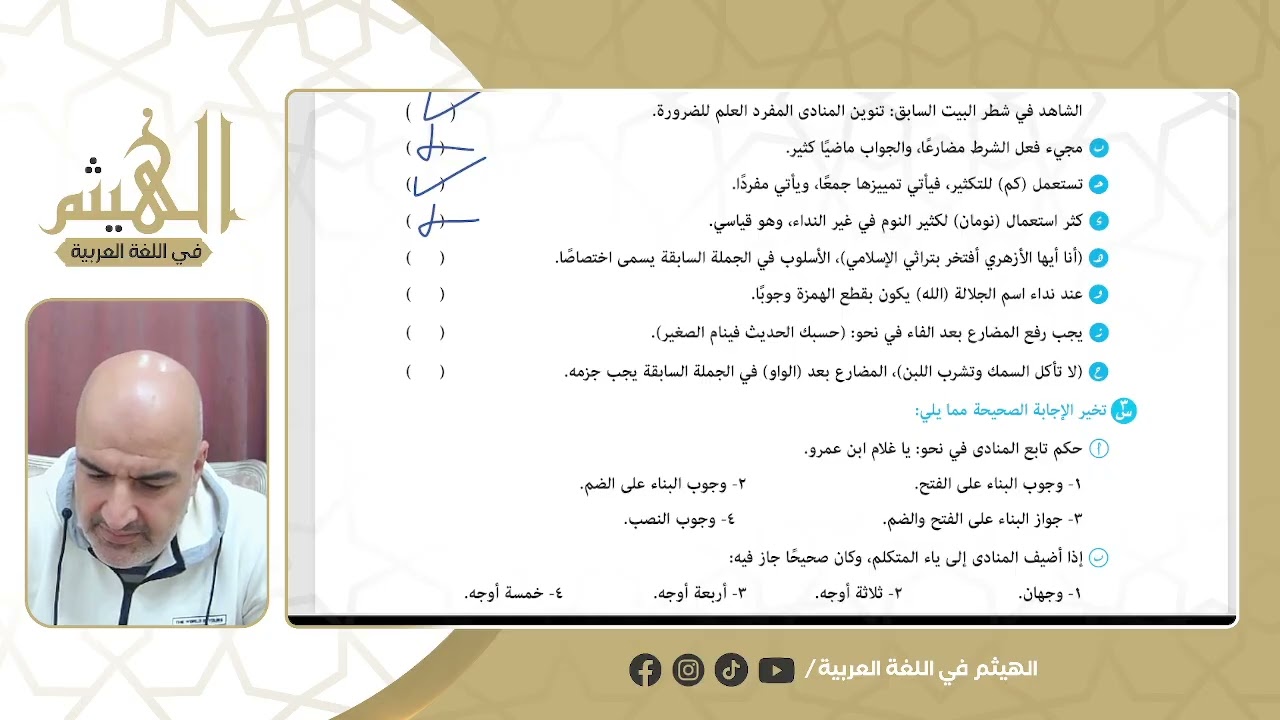 الهيثم
في اللغة العربية
الشاهد في شطر البيت السابق: تنوين المنادى المفرد العلم للضرورة. ( )
ب مجيء فعل الشرط مضارعًا، والجواب ماضيًا كثير. ( )
جـ تستعمل (كم) للتكثير، فيأتي تمييزها جمعًا، ويأتي مفردًا. ( )
د كثر استعمال (نومان) لكثير النوم في غير النداء، وهو قياسي. ( )
هـ (أنا أيها الأزهري أفتخر بتراثي الإسلامي)، الأسلوب في الجملة السابقة يسمى اختصاصًا. ( )
و عند نداء اسم الجلالة (الله) يكون بقطع الهمزة وجوبًا. ( )
ز يجب رفع المضارع بعد الفاء في نحو: (حسبك الحديث فينام الصغير). ( )
ح (لا تأكل السمك وتشرب اللبن)، المضارع بعد (الواو) في الجملة السابقة يجب جزمه. ( )
س٣ تخير الإجابة الصحيحة مما يلي:
أ حكم تابع المنادى في نحو: يا غلام ابن عمرو.
١- وجوب البناء على الفتح. ٢- وجوب البناء على الضم.
٣- جواز البناء على الفتح والضم. ٤- وجوب النصب.
ب إذا أضيف المنادى إلى ياء المتكلم، وكان صحيحًا جاز فيه:
١- وجهان. ٢- ثلاثة أوجه. ٣- أربعة أوجه. ٤- خمسة أوجه.
/الهيثم في اللغة العربية